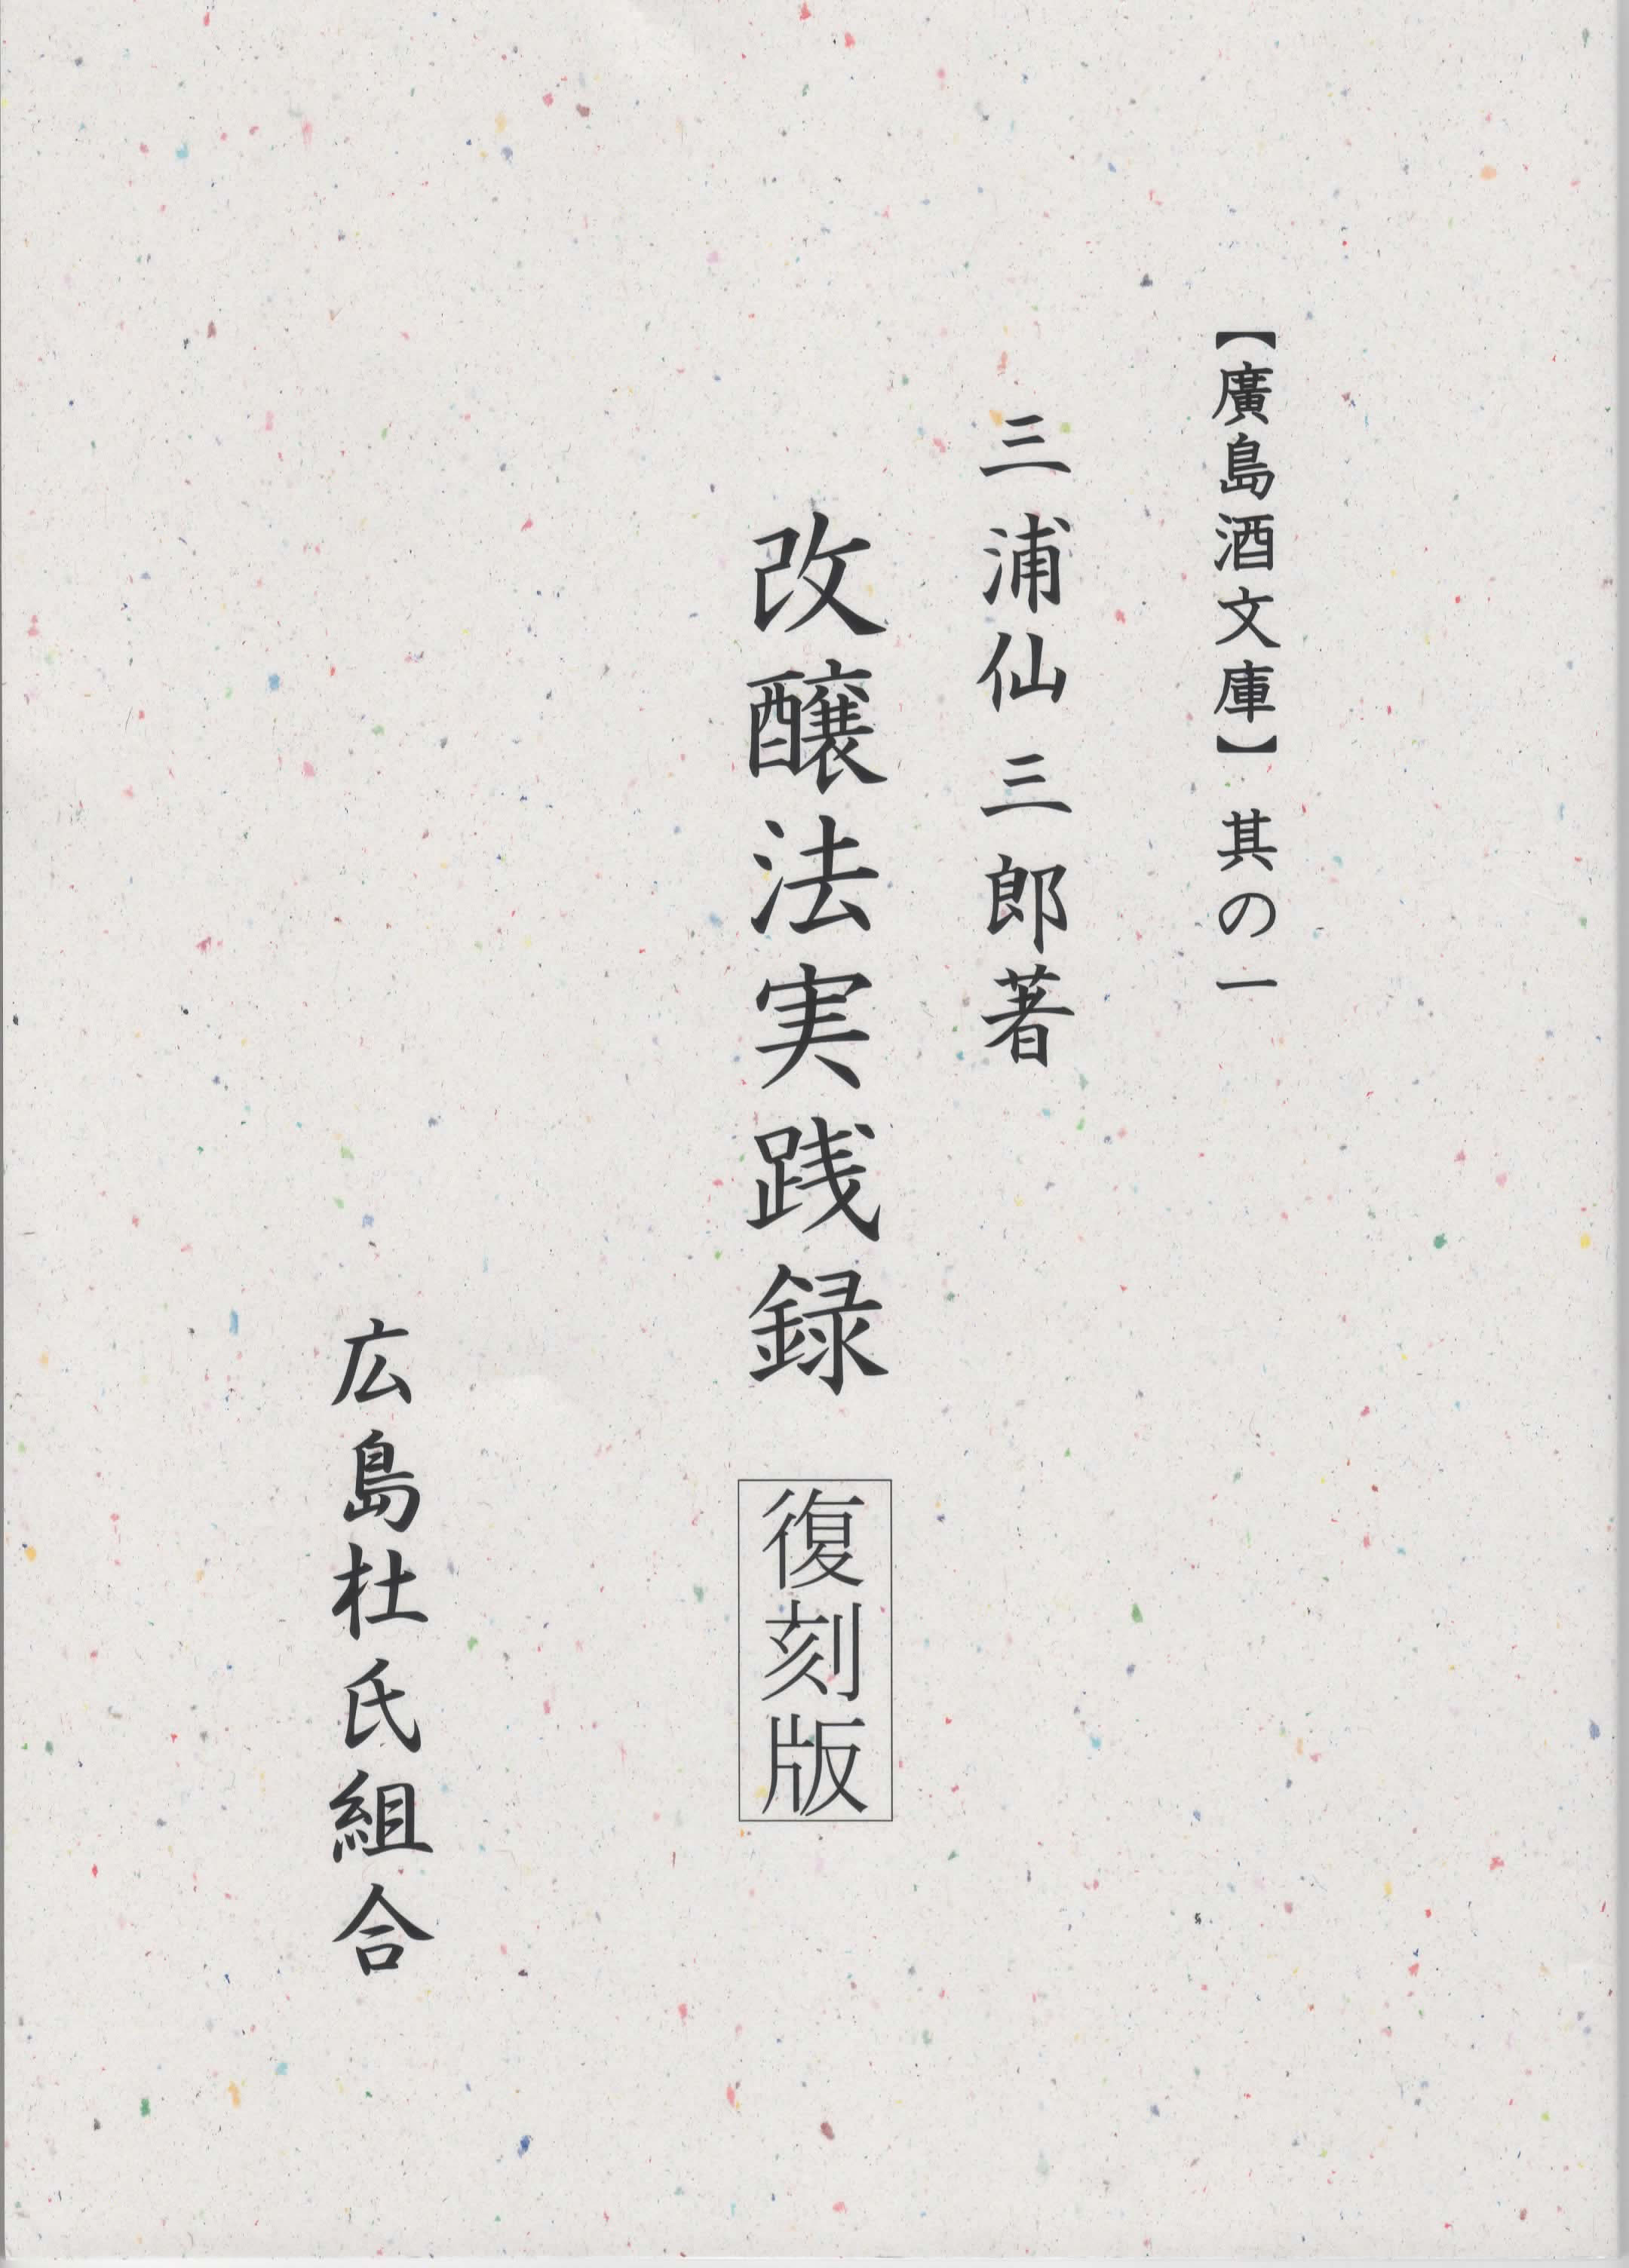 【廣島酒文庫】其の一
三浦仙三郎著
改醸法実践録 復刻版
広島杜氏組合